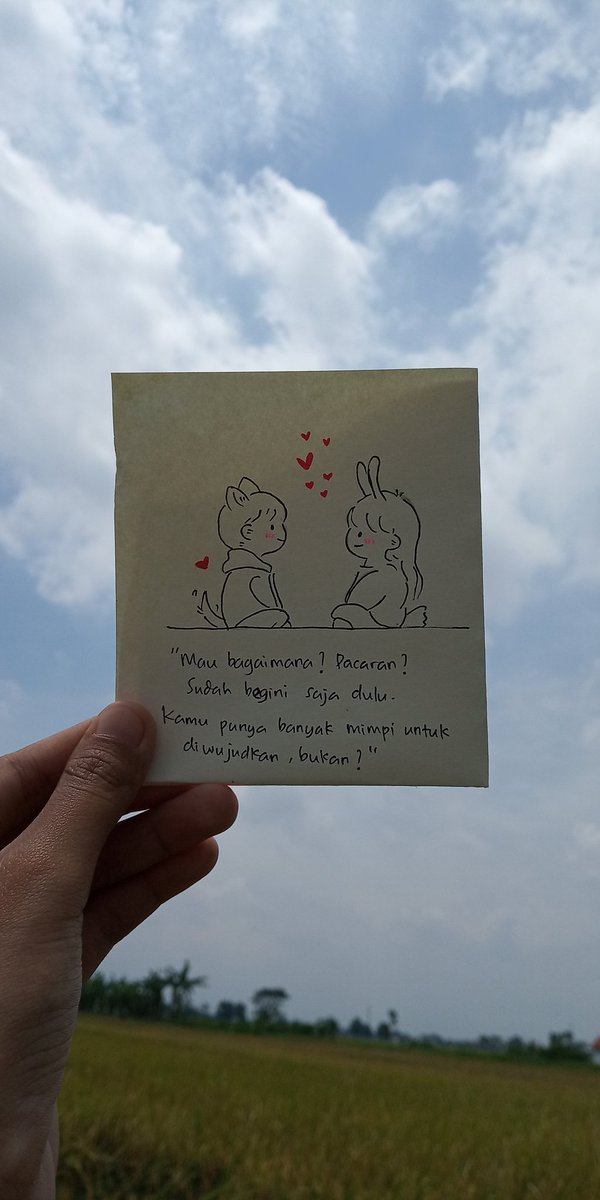 "Mau bagaimana? Pacaran?
Sudah begini saja dulu.
Kamu punya banyak mimpi untuk
diwujudkan, bukan?"